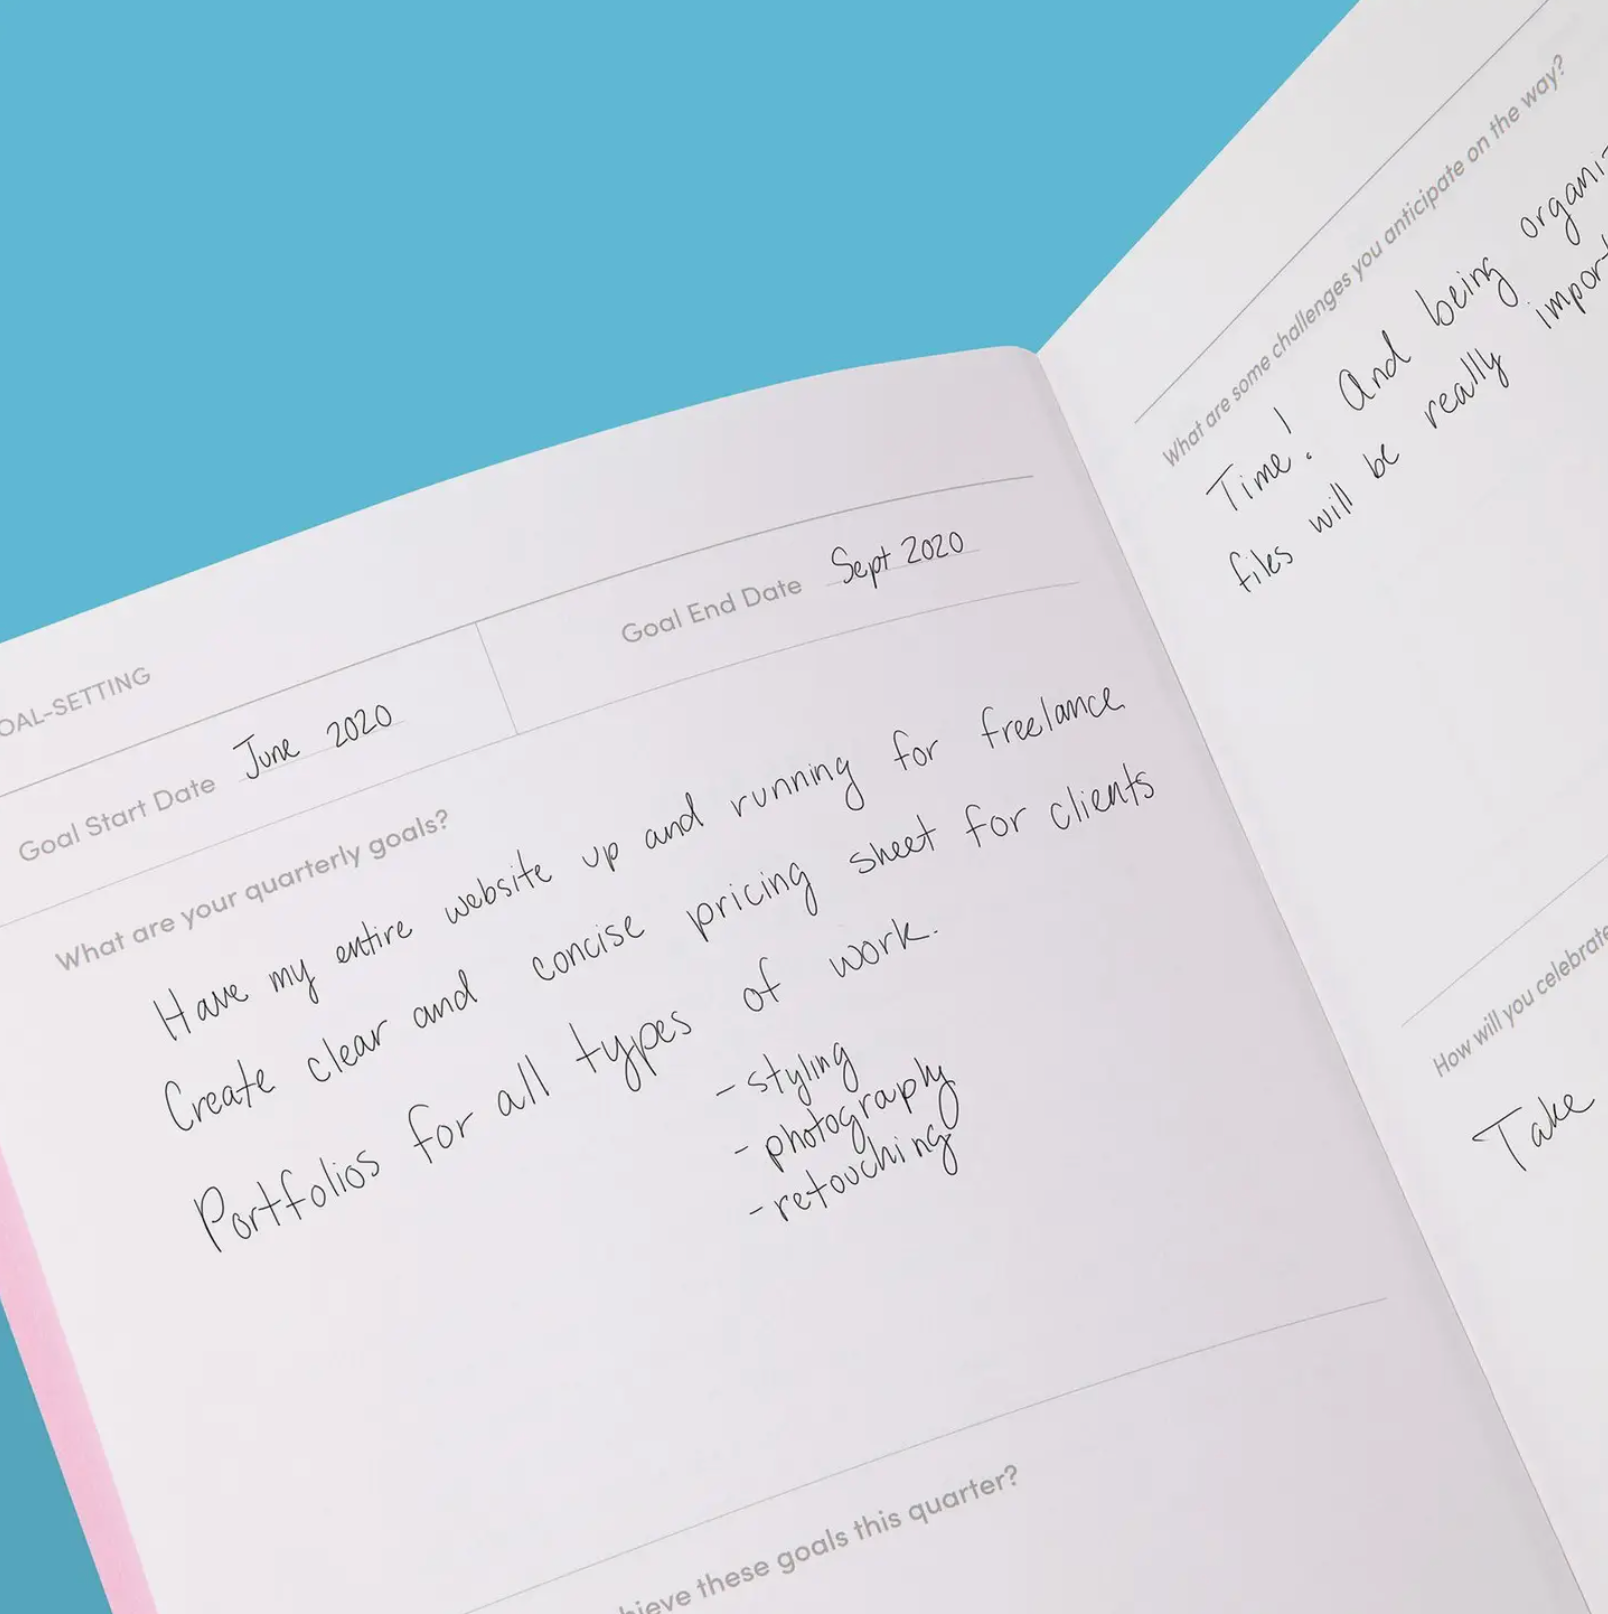 OAL-SETTING
Goal Start Date June 2020
Goal End Date Sept 2020
What are your quarterly goals?
Have my entire website up and running for freelance
Create clear and concise pricing sheet for clients
Portfolios for all types of work.
- styling
- photography
- retouching
hieve these goals this quarter?
What are some challenges you anticipate on the way?
Time! And being organi
files will be really import
How will you celebrate
Take